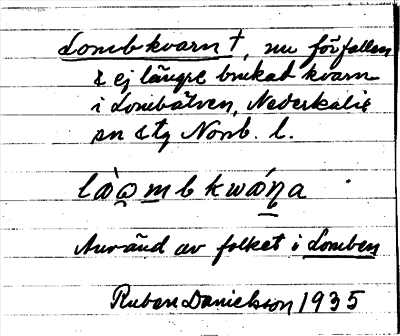 Lombkvarn †, nu förfallen
& ej längre brukat kvarn
i Lombälven, Nederkalix
sn &tg Norrb. l.
làɷmbkwáṇa
Använd av folket i Lomben
Ruben Danielsson 1935